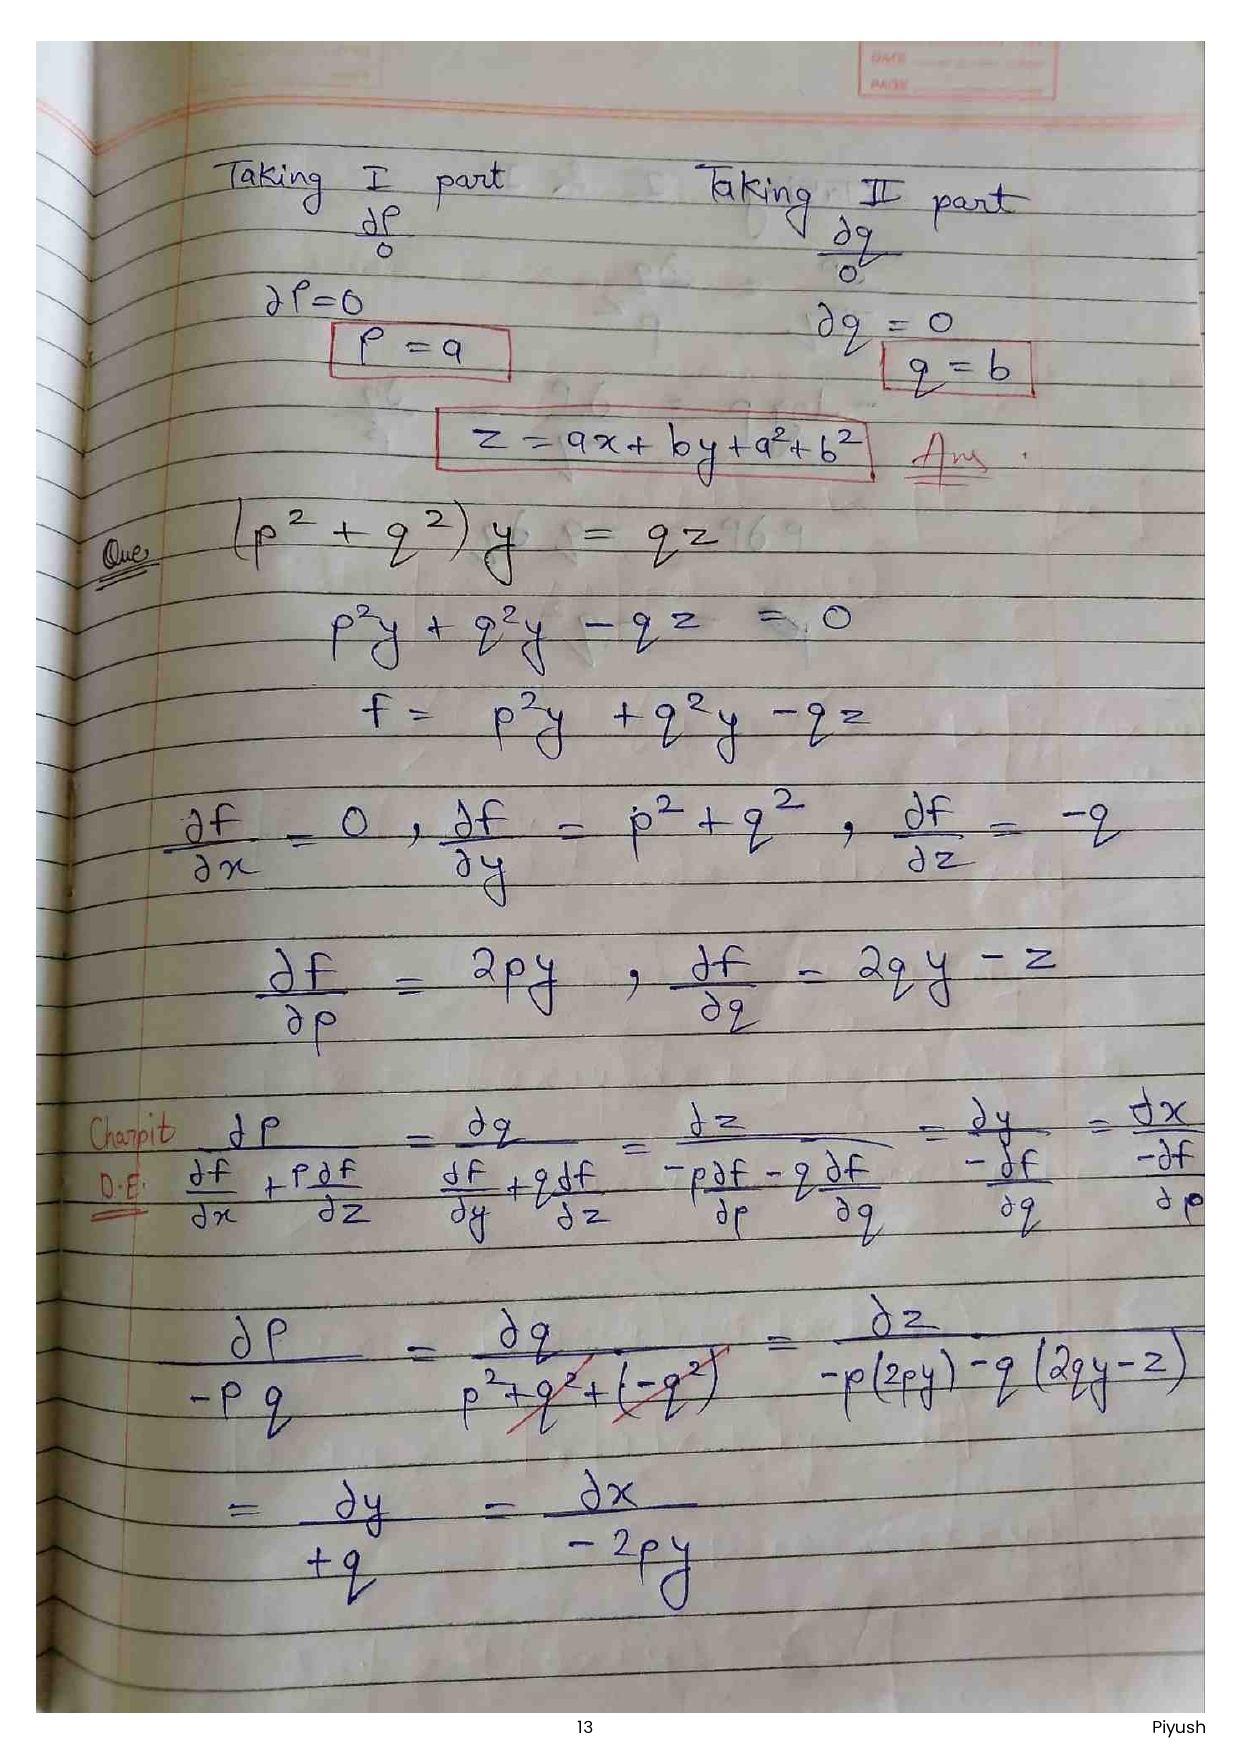 DATE
PAGE
Taking I part Taking II part
∂P/0 ∂q/0
∂P=0 ∂q = 0
P = a q = b
z = ax + by + a² + b² Ans.
Que (p² + q²) y = qz
p²y + q²y - qz = 0
f = p²y + q²y - qz
∂f/∂x = 0 , ∂f/∂y = p² + q² , ∂f/∂z = -q
∂f/∂p = 2py , ∂f/∂q = 2qy - z
Charpit D.E. ∂P/(∂f/∂x + P∂f/∂z) = ∂q/(∂f/∂y + q∂f/∂z) = ∂z/(-p∂f/∂p - q∂f/∂q) = ∂y/(-∂f/∂q) = ∂x/(-∂f/∂p)
∂P/(-Pq) = ∂q/(p²+q²+(-q²)) = ∂z/(-p(2py)-q(2qy-z))
= ∂y/(+q) = ∂x/(-2py)
13 Piyush